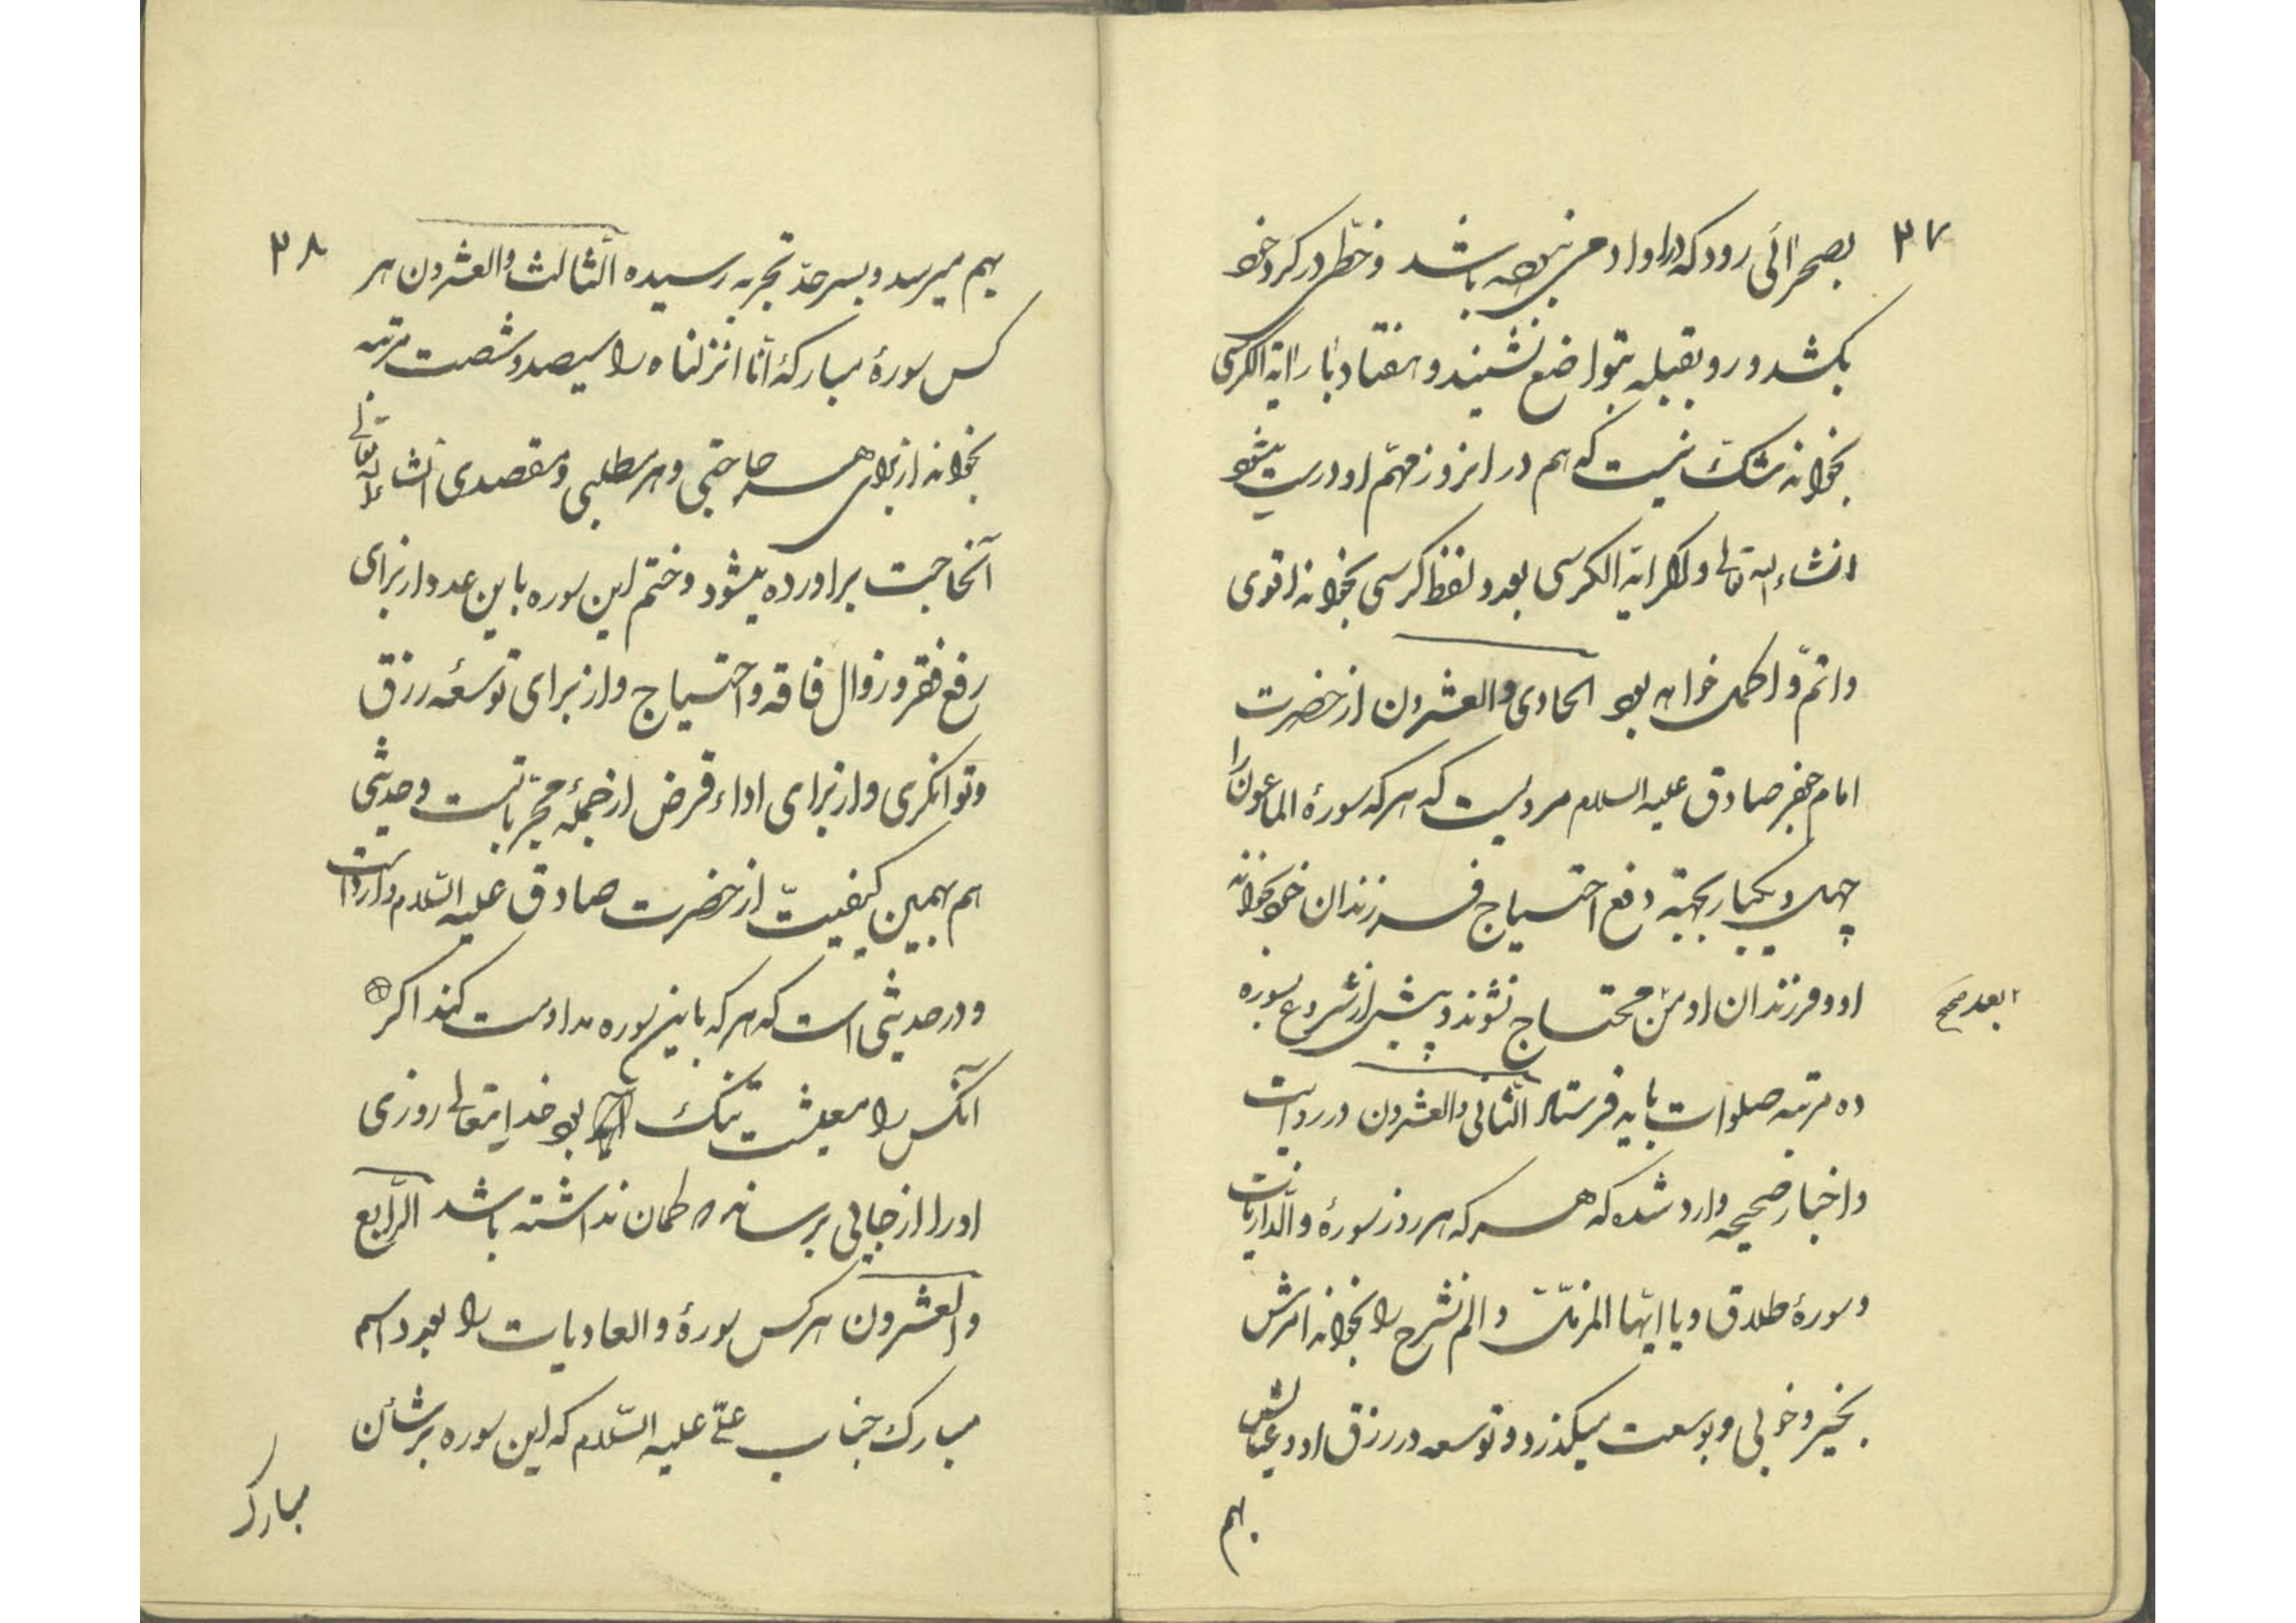 ۳۷
بصحرائی رود که در او ادمی نبوده باشد و خطّی در کرد خود
بکشد و رو بقبله بتواضع نشیند و هفتاد بار ایة الکرسی
بخواند شک نیست که هم در انروز مهمّ او درست میشود
انشاء الله تعالی و اکر ایة الکرسی بعدد لفظ کرسی بخواند اقوی
و اتمّ و اکمل خواهد بود الحادی والعشرون از حضرت
امام جعفر صادق علیه السلام مرویست که هر که سورهٔ الماعون را
چهل و یکبار بجهة رفع احتیاج فرزندان خود بخواند
او و فرزندان او محتاج نشوند و پیش از شروع بسوره
بعد صح
ده مرتبه صلوات باید فرستاد الثّانی والعشرون در روایت
و اخبار صحیحه وارد شده که هر که هر روز سورهٔ والذّاریات
و سورهٔ طلاق و یا ایّها المزمّل و الم نشرح را بخواند امرش
بخیر و خوبی و بوسعت میکذرد و توسعه در رزق او و عیالش
بهم
۳۸
بهم میرسد و بسرحدّ تجربه رسیده الثّالث والعشرون هر
کس سورهٔ مبارکهٔ انّا انزلناه را سیصد و شصت مرتبه
بخواند از برای هر حاجتی و هر مطلبی و مقصدی انشاء الله تعالی
آنحاجت براورده میشود و ختم این سوره باین عدد از برای
رفع فقر و زوال فاقه و احتیاج و از برای توسعهٔ رزق
و توانکری و از برای اداء قرض از جملهٔ مجرّباتست و حدیثی
هم بهمین کیفیّت از حضرت صادق علیه السّلام وارد است
و در حدیثی است که هر که باین سوره مداومت کند اکر
آنکس را معیشت تنک بود خدایتعالی روزی
او را از جایی برساند که کمان نداشته باشد الرّابع
والعشرون هر کس سورهٔ والعادیات را بعدد اسم
مبارک جناب علیّ علیه السّلام که این سوره بر شأن
مبارک